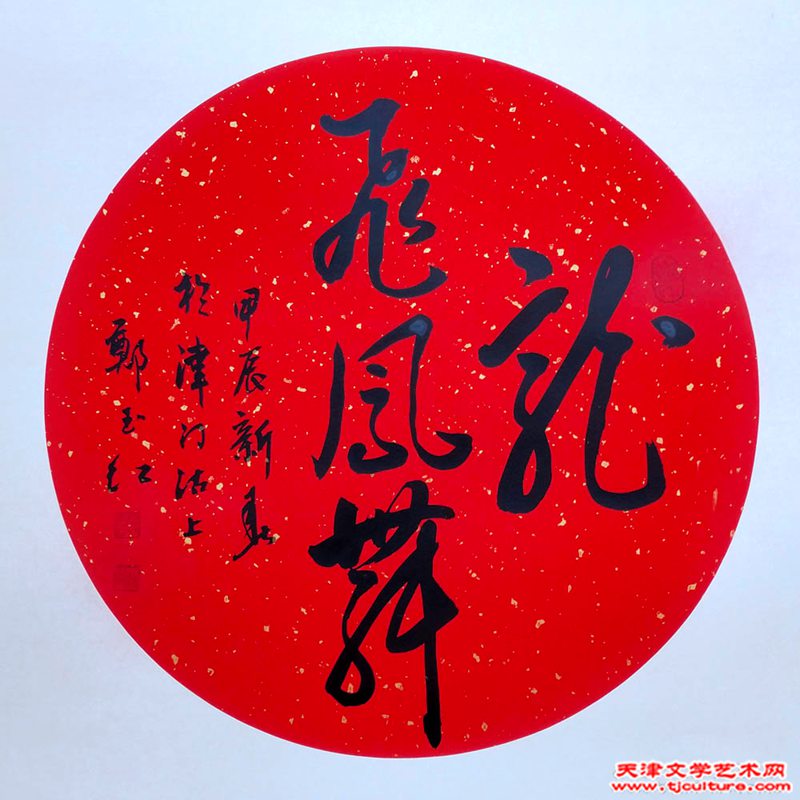 龍
飛鳳舞
甲辰新春
於津門沽上
鄭玉紅
天津文学艺术网
www.tjculture.com